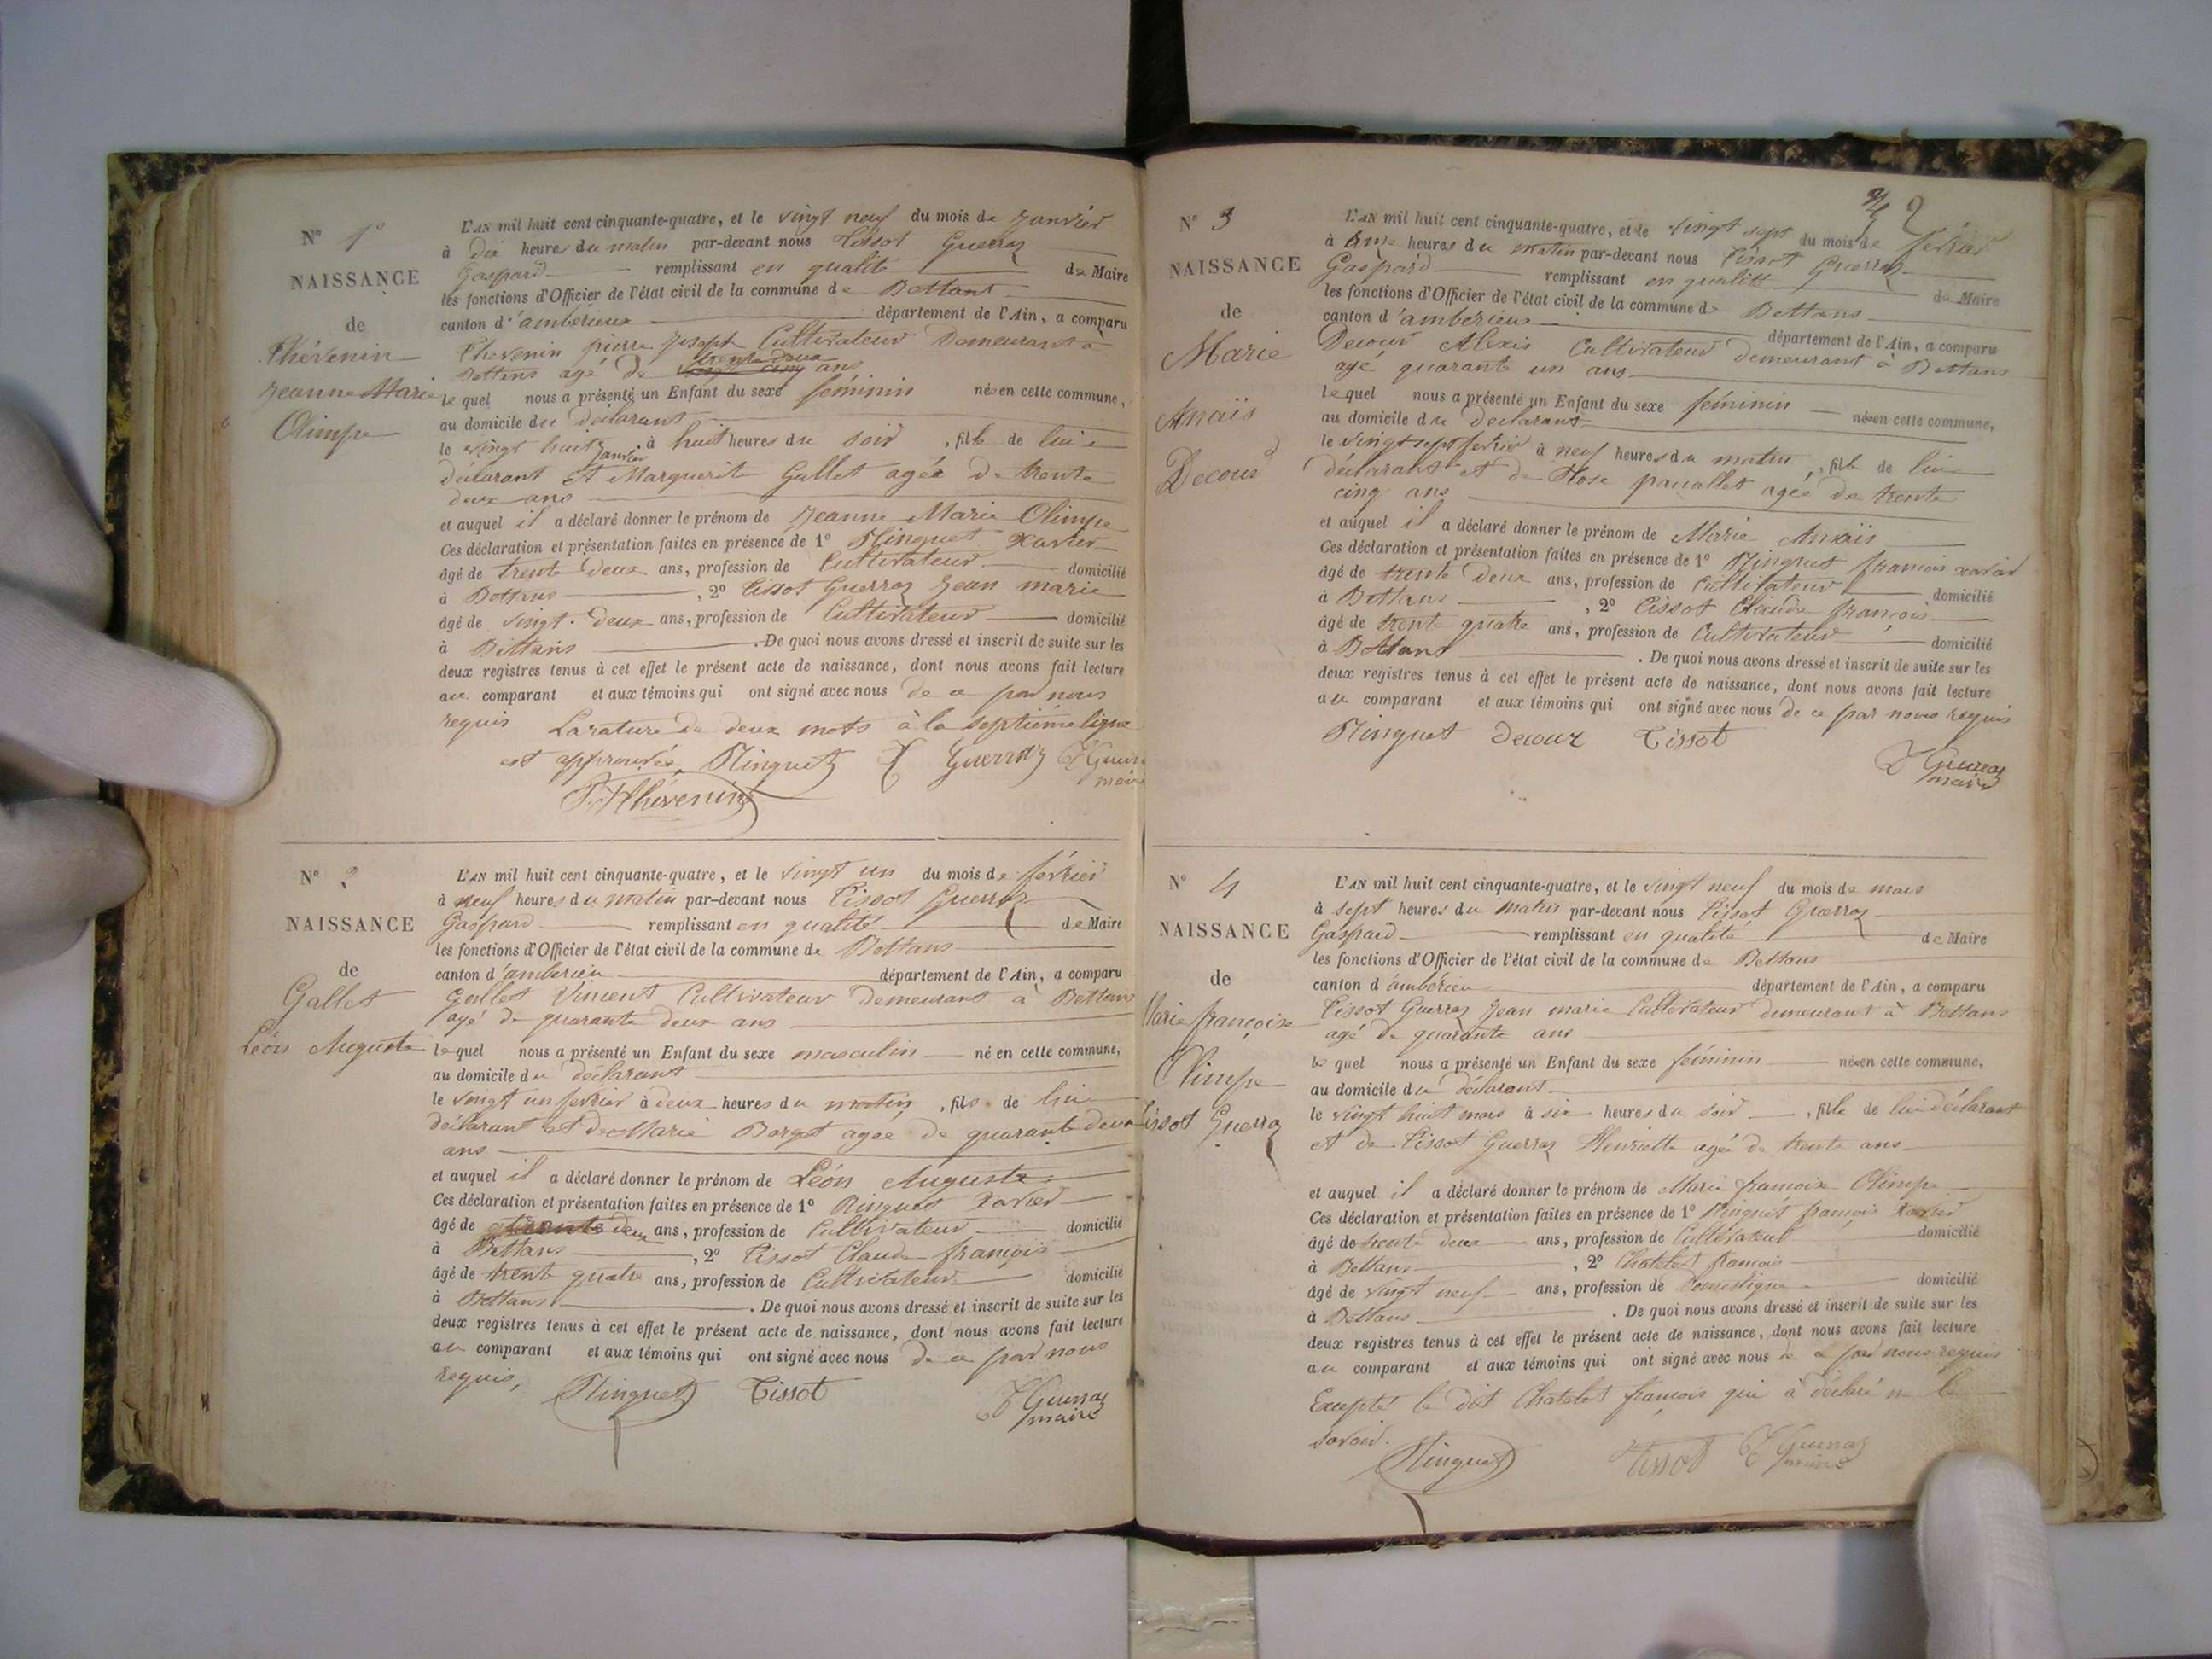 N° 1°
NAISSANCE
de
Thévenin
Jeanne Marie
Olimpe
L'AN mil huit cent cinquante-quatre, et le vingt neuf du mois de Janvier
à dix heures du matin par-devant nous Tissot Guerraz
Gaspard remplissant en qualité de Maire
les fonctions d'Officier de l'état civil de la commune de Bettans
canton d'ambérieux département de l'Ain, a comparu
Thevenin pierre Joseph Cultivateur Demeurant à
Bettans agé de trente deux ans
lequel nous a présenté un Enfant du sexe féminin née en cette commune,
au domicile du déclarant
le vingt huit Janvier à huit heures du soir, fille de lui
déclarant et Marguerite Gallet agée de trente
deux ans
et auquel il a déclaré donner le prénom de Jeanne Marie Olimpe
Ces déclaration et présentation faites en présence de 1° Ringuet Xavier
âgé de trente deux ans, profession de Cultivateur domicilié
à Bettans, 2° Tissot Guerraz Jean marie
âgé de vingt deux ans, profession de Cultivateur domicilié
à Bettans. De quoi nous avons dressé et inscrit de suite sur les
deux registres tenus à cet effet le présent acte de naissance, dont nous avons fait lecture
au comparant et aux témoins qui ont signé avec nous de ce par nous
requis La rature de deux mots à la septième ligne
est approuvés, Ringuet T Guerraz T Guerr
maire
Thévenin
N° 2
NAISSANCE
de
Gallet
Léon Auguste
L'AN mil huit cent cinquante-quatre, et le vingt un du mois de février
à neuf heures du matin par-devant nous Tissot Guerraz
Gaspard remplissant en qualité de Maire
les fonctions d'Officier de l'état civil de la commune de Bettans
canton d'ambérieu département de l'Ain, a comparu
Gallet Vincent Cultivateur demeurant à Bettans
agé de quarante deux ans
lequel nous a présenté un Enfant du sexe masculin né en cette commune,
au domicile du déclarant
le vingt un février à deux heures du matin, fils de lui
déclarant et de Marie Borget agée de quarante deux
ans
et auquel il a déclaré donner le prénom de Léon Auguste
Ces déclaration et présentation faites en présence de 1° Ringuet Xavier
âgé de trente deux ans, profession de Cultivateur domicilié
à Bettans, 2° Tissot Claude françois
âgé de trent quatre ans, profession de Cultivateur domicilié
à Bettans. De quoi nous avons dressé et inscrit de suite sur les
deux registres tenus à cet effet le présent acte de naissance, dont nous avons fait lecture
au comparant et aux témoins qui ont signé avec nous de ce par nous
requis, Ringuet Tissot T Guerraz
maire
2
N° 3
NAISSANCE
de
Marie
Anaïs
Decour
L'AN mil huit cent cinquante-quatre, et le vingt sept du mois de février
à onze heures du matin par-devant nous Tissot Guerraz
Gaspard remplissant en qualité de Maire
les fonctions d'Officier de l'état civil de la commune de Bettans
canton d'ambérieux département de l'Ain, a comparu
Decour Alexis Cultivateur demeurant à Bettans
agé quarante un ans
lequel nous a présenté un Enfant du sexe féminin née en cette commune,
au domicile du déclarant
le vingt sept février à neuf heures du matin, fille de lui
déclarant et de Rose agée de trente
cinq ans
et auquel il a déclaré donner le prénom de Marie Anaïs
Ces déclaration et présentation faites en présence de 1° Ringuet francois xavier
âgé de trente deux ans, profession de Cultivateur domicilié
à Bettans, 2° Tissot Claude françois
âgé de trent quatre ans, profession de Cultivateur domicilié
à Bettans. De quoi nous avons dressé et inscrit de suite sur les
deux registres tenus à cet effet le présent acte de naissance, dont nous avons fait lecture
au comparant et aux témoins qui ont signé avec nous de ce par nous requis
Ringuet Decour Tissot
T Guerraz
maire
N° 4
NAISSANCE
de
Marie françoise
Olimpe
Tissot Guerraz
L'AN mil huit cent cinquante-quatre, et le vingt neuf du mois de mars
à sept heures du matin par-devant nous Tissot Guerraz
Gaspard remplissant en qualité de Maire
les fonctions d'Officier de l'état civil de la commune de Bettans
canton d'ambérieu département de l'Ain, a comparu
Tissot Guerraz Jean marie Cultivateur demeurant à Bettans
agé de quarante ans
lequel nous a présenté un Enfant du sexe féminin née en cette commune,
au domicile du déclarant
le vingt huit mars à six heures du soir, fille de lui déclarant
et de Tissot Guerraz Henriette agée de trente ans
et auquel il a déclaré donner le prénom de Marie francoise Olimpe
Ces déclaration et présentation faites en présence de 1° Ringuet francois Xavier
âgé de trente deux ans, profession de Cultivateur domicilié
à Bettans, 2° Chatelet francois
âgé de vingt neuf ans, profession de Domestique domicilié
à Bettans. De quoi nous avons dressé et inscrit de suite sur les
deux registres tenus à cet effet le présent acte de naissance, dont nous avons fait lecture
au comparant et aux témoins qui ont signé avec nous de ce par nous requis
Excepté le dit Chatelet françois qui à déclaré ne le
savoir.
Ringuet Tissot T Guerraz
maire